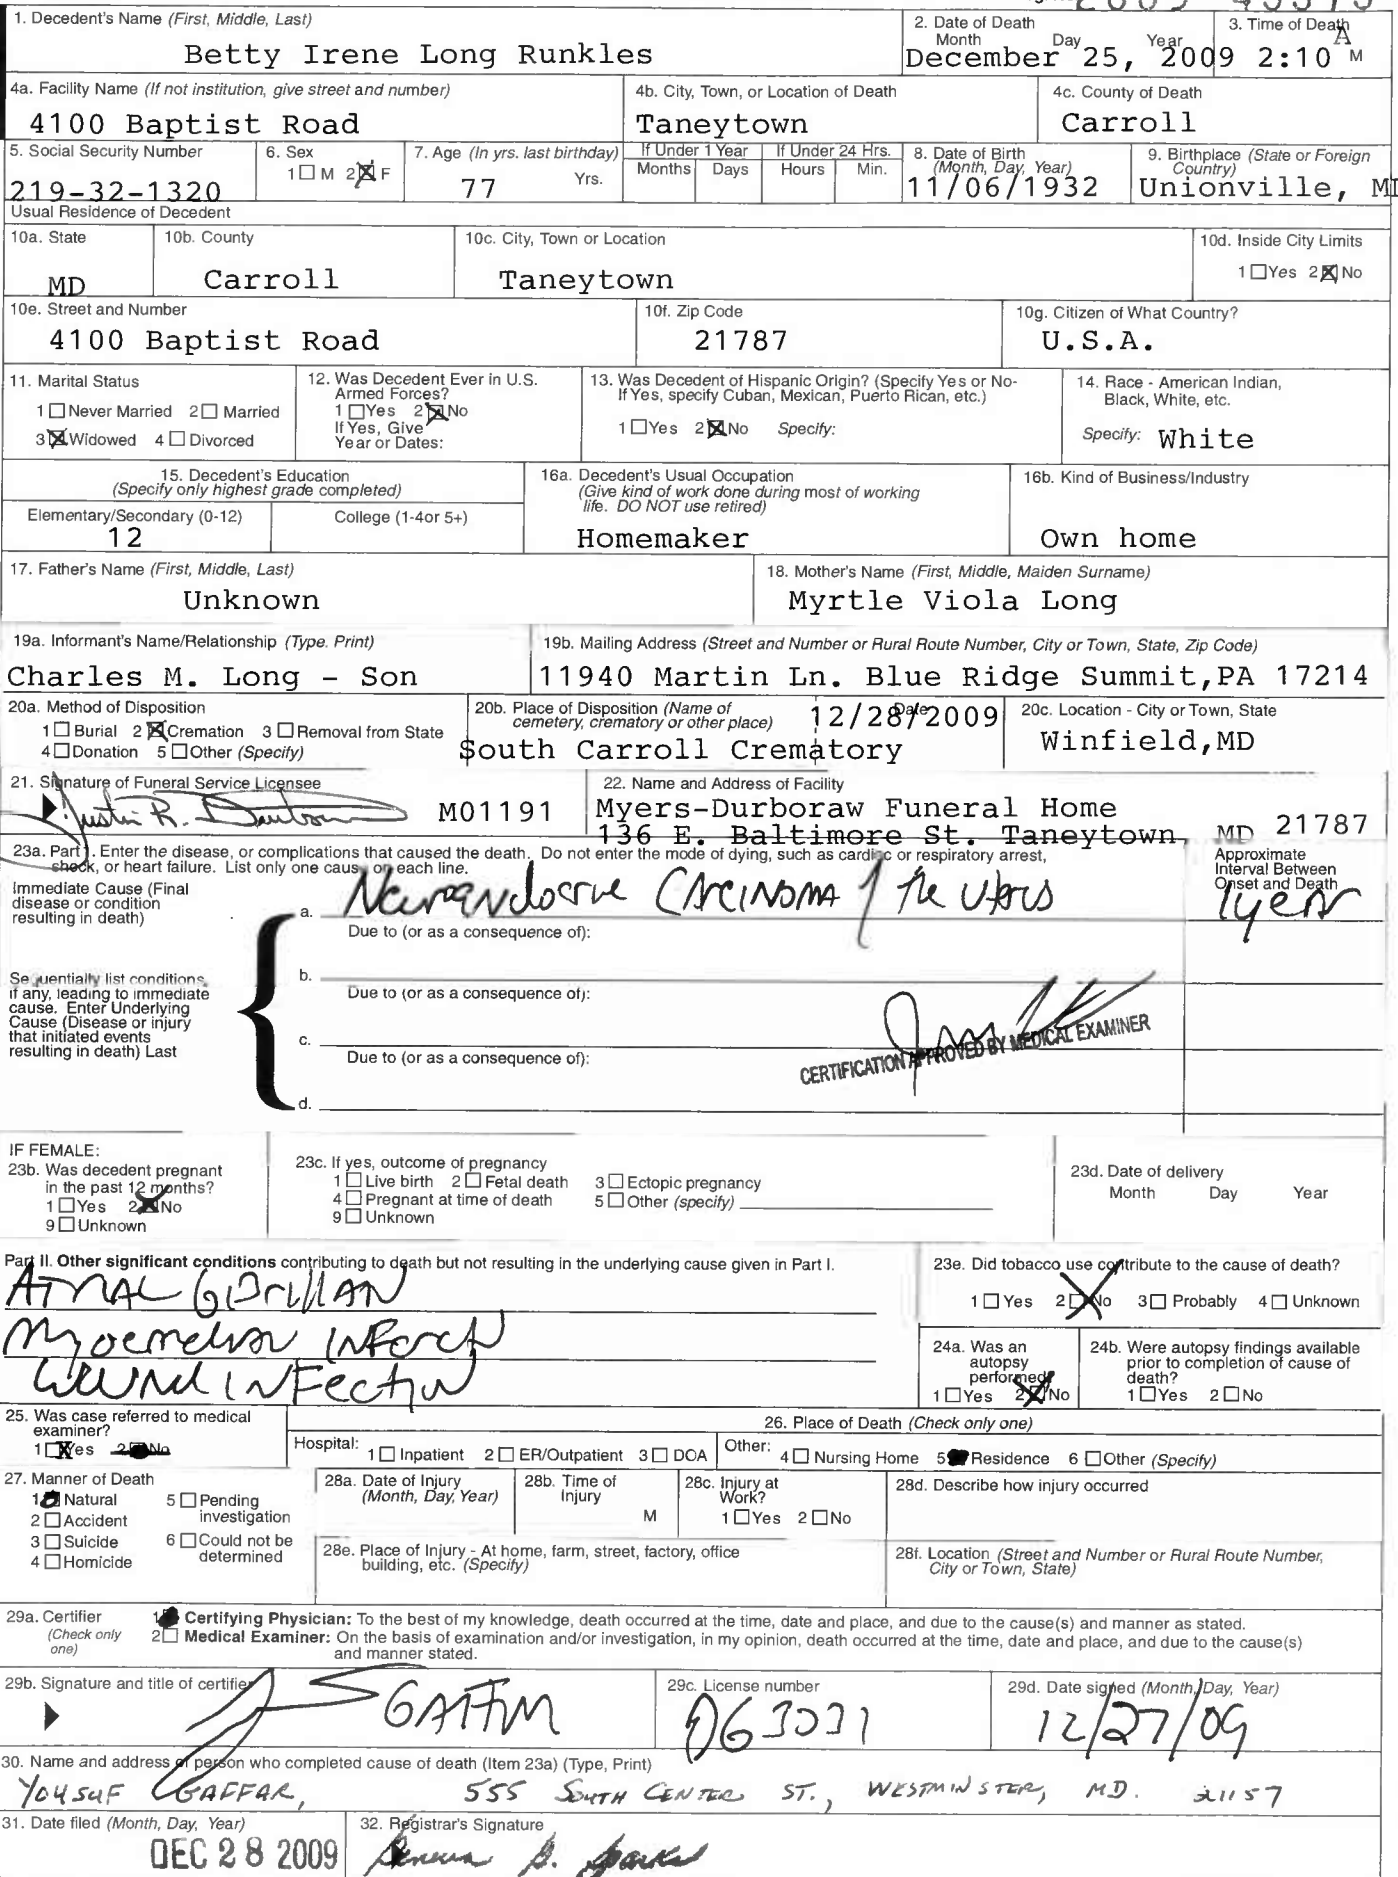 1. Decedent's Name (First, Middle, Last)
Betty Irene Long Runkles
2. Date of Death
Month Day Year
December 25, 2009
3. Time of Death
2:10 A M
4a. Facility Name (If not institution, give street and number)
4100 Baptist Road
4b. City, Town, or Location of Death
Taneytown
4c. County of Death
Carroll
5. Social Security Number
219-32-1320
6. Sex
1 ☐ M 2 ☒ F
7. Age (In yrs. last birthday)
77 Yrs.
If Under 1 Year
Months Days
If Under 24 Hrs.
Hours Min.
8. Date of Birth
(Month, Day, Year)
11/06/1932
9. Birthplace (State or Foreign
Country)
Unionville, MD
Usual Residence of Decedent
10a. State
MD
10b. County
Carroll
10c. City, Town or Location
Taneytown
10d. Inside City Limits
1 ☐ Yes 2 ☒ No
10e. Street and Number
4100 Baptist Road
10f. Zip Code
21787
10g. Citizen of What Country?
U.S.A.
11. Marital Status
1 ☐ Never Married 2 ☐ Married
3 ☒ Widowed 4 ☐ Divorced
12. Was Decedent Ever in U.S.
Armed Forces?
1 ☐ Yes 2 ☒ No
If Yes, Give
Year or Dates:
13. Was Decedent of Hispanic Origin? (Specify Yes or No-
If Yes, specify Cuban, Mexican, Puerto Rican, etc.)
1 ☐ Yes 2 ☒ No Specify:
14. Race - American Indian,
Black, White, etc.
Specify: White
15. Decedent's Education
(Specify only highest grade completed)
Elementary/Secondary (0-12)
12
College (1-4or 5+)
16a. Decedent's Usual Occupation
(Give kind of work done during most of working
life. DO NOT use retired)
Homemaker
16b. Kind of Business/Industry
Own home
17. Father's Name (First, Middle, Last)
Unknown
18. Mother's Name (First, Middle, Maiden Surname)
Myrtle Viola Long
19a. Informant's Name/Relationship (Type. Print)
Charles M. Long - Son
19b. Mailing Address (Street and Number or Rural Route Number, City or Town, State, Zip Code)
11940 Martin Ln. Blue Ridge Summit,PA 17214
20a. Method of Disposition
1 ☐ Burial 2 ☒ Cremation 3 ☐ Removal from State
4 ☐ Donation 5 ☐ Other (Specify)
20b. Place of Disposition (Name of
cemetery, crematory or other place)
Date
12/28/2009
South Carroll Crematory
20c. Location - City or Town, State
Winfield,MD
21. Signature of Funeral Service Licensee
Justin R. Durboraw M01191
22. Name and Address of Facility
Myers-Durboraw Funeral Home
136 E. Baltimore St. Taneytown, MD 21787
23a. Part I. Enter the disease, or complications that caused the death. Do not enter the mode of dying, such as cardiac or respiratory arrest,
shock, or heart failure. List only one cause on each line.
Approximate
Interval Between
Onset and Death
Immediate Cause (Final
disease or condition
resulting in death)
a. Neuroendocrine CARCINOMA of the uterus
1 year
Due to (or as a consequence of):
Sequentially list conditions,
if any, leading to immediate
cause. Enter Underlying
Cause (Disease or injury
that initiated events
resulting in death) Last
b.
Due to (or as a consequence of):
c.
Due to (or as a consequence of):
d.
CERTIFICATION APPROVED BY MEDICAL EXAMINER
IF FEMALE:
23b. Was decedent pregnant
in the past 12 months?
1 ☐ Yes 2 ☒ No
9 ☐ Unknown
23c. If yes, outcome of pregnancy
1 ☐ Live birth 2 ☐ Fetal death 3 ☐ Ectopic pregnancy
4 ☐ Pregnant at time of death 5 ☐ Other (specify)
9 ☐ Unknown
23d. Date of delivery
Month Day Year
Part II. Other significant conditions contributing to death but not resulting in the underlying cause given in Part I.
Myocardial INFarct
WOUND INFection
23e. Did tobacco use contribute to the cause of death?
1 ☐ Yes 2 ☒ No 3 ☐ Probably 4 ☐ Unknown
24a. Was an
autopsy
performed?
1 ☐ Yes 2 ☒ No
24b. Were autopsy findings available
prior to completion of cause of
death?
1 ☐ Yes 2 ☐ No
25. Was case referred to medical
examiner?
1 ☒ Yes 2 ☐ No
26. Place of Death (Check only one)
Hospital: 1 ☐ Inpatient 2 ☐ ER/Outpatient 3 ☐ DOA
Other: 4 ☐ Nursing Home 5 ☒ Residence 6 ☐ Other (Specify)
27. Manner of Death
1 ☒ Natural 5 ☐ Pending
investigation
2 ☐ Accident
3 ☐ Suicide 6 ☐ Could not be
determined
4 ☐ Homicide
28a. Date of Injury
(Month, Day, Year)
28b. Time of
Injury
M
28c. Injury at
Work?
1 ☐ Yes 2 ☐ No
28d. Describe how injury occurred
28e. Place of Injury - At home, farm, street, factory, office
building, etc. (Specify)
28f. Location (Street and Number or Rural Route Number,
City or Town, State)
29a. Certifier
(Check only
one)
1 ☒ Certifying Physician: To the best of my knowledge, death occurred at the time, date and place, and due to the cause(s) and manner as stated.
2 ☐ Medical Examiner: On the basis of examination and/or investigation, in my opinion, death occurred at the time, date and place, and due to the cause(s)
and manner stated.
29b. Signature and title of certifier
29c. License number
D63031
29d. Date signed (Month, Day, Year)
12/27/09
30. Name and address of person who completed cause of death (Item 23a) (Type, Print)
YOUSUF GAFFAR, 555 SOUTH CENTER ST., WESTMINSTER, MD. 21157
31. Date filed (Month, Day, Year)
DEC 28 2009
32. Registrar's Signature